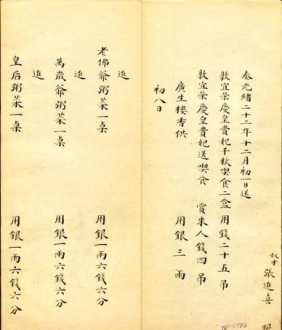 奴才張進喜
奏光緒二十二年十二月初一日送
敦宜榮慶皇貴妃千秋喫食二盒用錢二十五吊
敦宜榮慶皇貴妃送喫食 賞來人錢四吊
廣生樓香供 用銀三兩
初八日
進
老佛爺粥菜一桌 用銀一兩六錢六分
進
萬歲爺粥菜一桌 用銀一兩六錢六分
進
皇后粥菜一桌 用銀一兩六錢六分